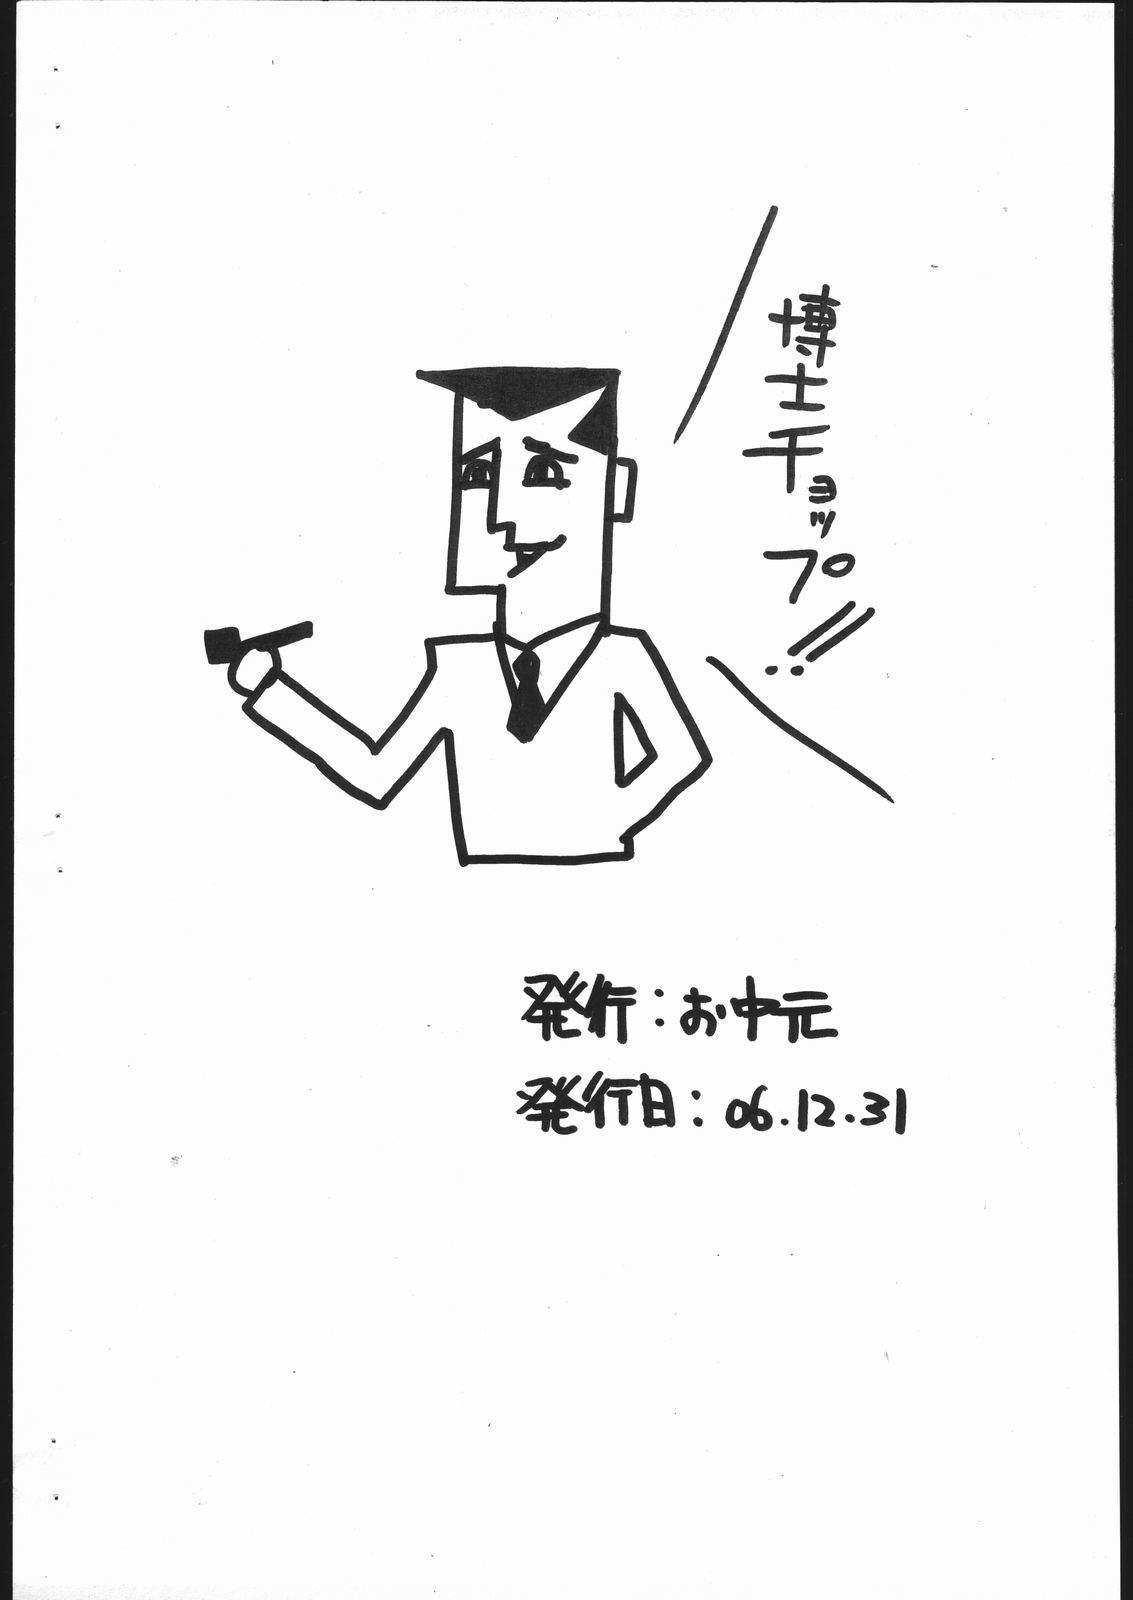 博士チョップ!!
発行:お中元
発行日:06.12.31